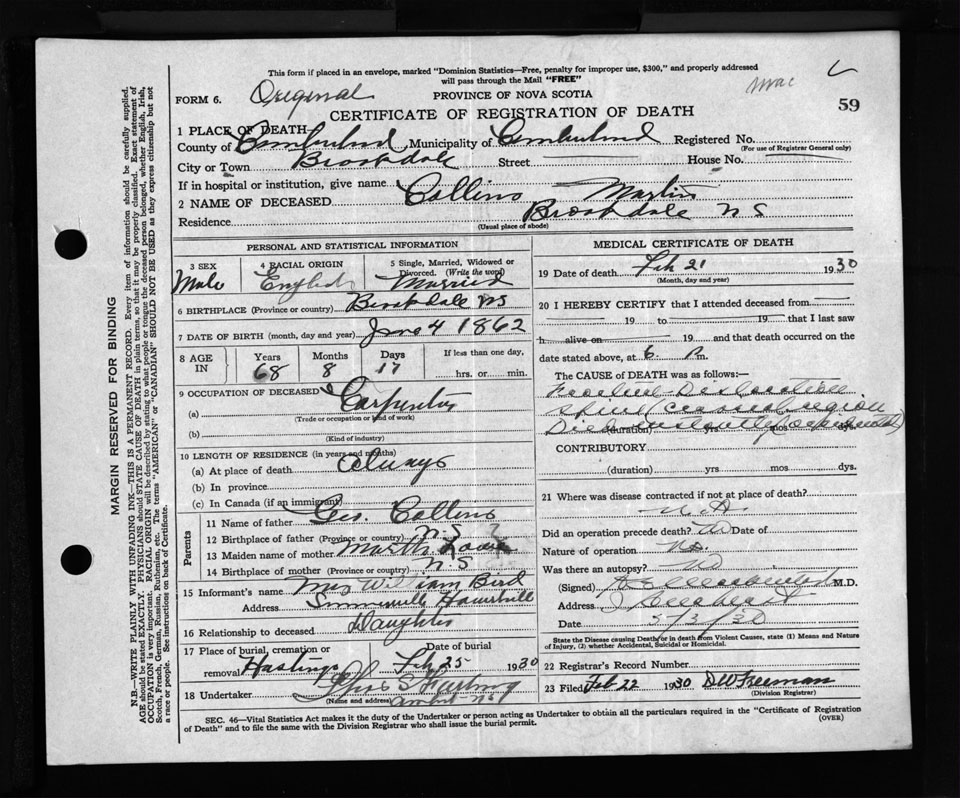 This form if placed in an envelope, marked "Dominion Statistics—Free, penalty for improper use, $300," and properly addressed
will pass through the Mail "FREE"
FORM 6. Original PROVINCE OF NOVA SCOTIA
CERTIFICATE OF REGISTRATION OF DEATH 59
1 PLACE OF DEATH
County of Cumberland Municipality of Cumberland Registered No.
(For use of Registrar General only)
City or Town Brookdale Street House No.
If in hospital or institution, give name
2 NAME OF DECEASED Collins Martin
Residence Brookdale N S
(Usual place of abode)
PERSONAL AND STATISTICAL INFORMATION
3 SEX 4 RACIAL ORIGIN 5 Single, Married, Widowed or Divorced. (Write the word)
Male English Married
6 BIRTHPLACE (Province or country) Brookdale NS
7 DATE OF BIRTH (month, day and year) June 4 1862
8 AGE IN Years Months Days If less than one day,
68 8 17 hrs. or min.
9 OCCUPATION OF DECEASED
(a) Carpenter
(Trade or occupation or kind of work)
(b)
(Kind of industry)
10 LENGTH OF RESIDENCE (in years and months)
(a) At place of death always
(b) In province
(c) In Canada (if an immigrant)
Parents
11 Name of father Geo. Collins
12 Birthplace of father (Province or country) N.S
13 Maiden name of mother Martha
14 Birthplace of mother (Province or country) N.S
15 Informant's name Mrs William Bird
Address
16 Relationship to deceased Daughter
17 Place of burial, cremation or removal Hastings Date of burial Feb 25 1930
18 Undertaker
(Name and address) Amherst NS
MEDICAL CERTIFICATE OF DEATH
19 Date of death Feb 21 1930
(Month, day and year)
20 I HEREBY CERTIFY that I attended deceased from
19 to 19 that I last saw
h alive on 19 and that death occurred on the
date stated above, at 6 P m.
The CAUSE OF DEATH was as follows:
Fracture Dislocation
spine cervical region
Died instantly
(duration) yrs. mos. dys.
CONTRIBUTORY
(duration) yrs. mos dys.
21 Where was disease contracted if not at place of death?
Did an operation precede death? No Date of
Nature of operation No.
Was there an autopsy? No
(Signed) M.D.
Address Amherst
Date 5/3/30
State the Disease causing Death or in death from Violent Causes, state (1) Means and Nature
of Injury, (2) whether Accidental, Suicidal or Homicidal.
22 Registrar's Record Number
23 Filed Feb 22 1930 DW Freeman
(Division Registrar)
SEC. 46—Vital Statistics Act makes it the duty of the Undertaker or person acting as Undertaker to obtain all the particulars required in the "Certificate of Registration
of Death" and to file the same with the Division Registrar who shall issue the burial permit. (OVER)
MARGIN RESERVED FOR BINDING
N.B.—WRITE PLAINLY WITH UNFADING INK—THIS IS A PERMANENT RECORD. Every item of information should be carefully supplied.
AGE should be stated EXACTLY. PHYSICIANS should STATE CAUSE OF DEATH in plain terms, so that it may be properly classified. Exact statement of
OCCUPATION is very important. RACIAL ORIGIN will be described by stating to what people or tongue the deceased person belonged, whether English, Irish,
Scotch, French, German, Russian, Ruthenian, etc. The terms "AMERICAN" or "CANADIAN" SHOULD NOT BE USED as they express citizenship but not
a race or people. See instructions on back of Certificate.